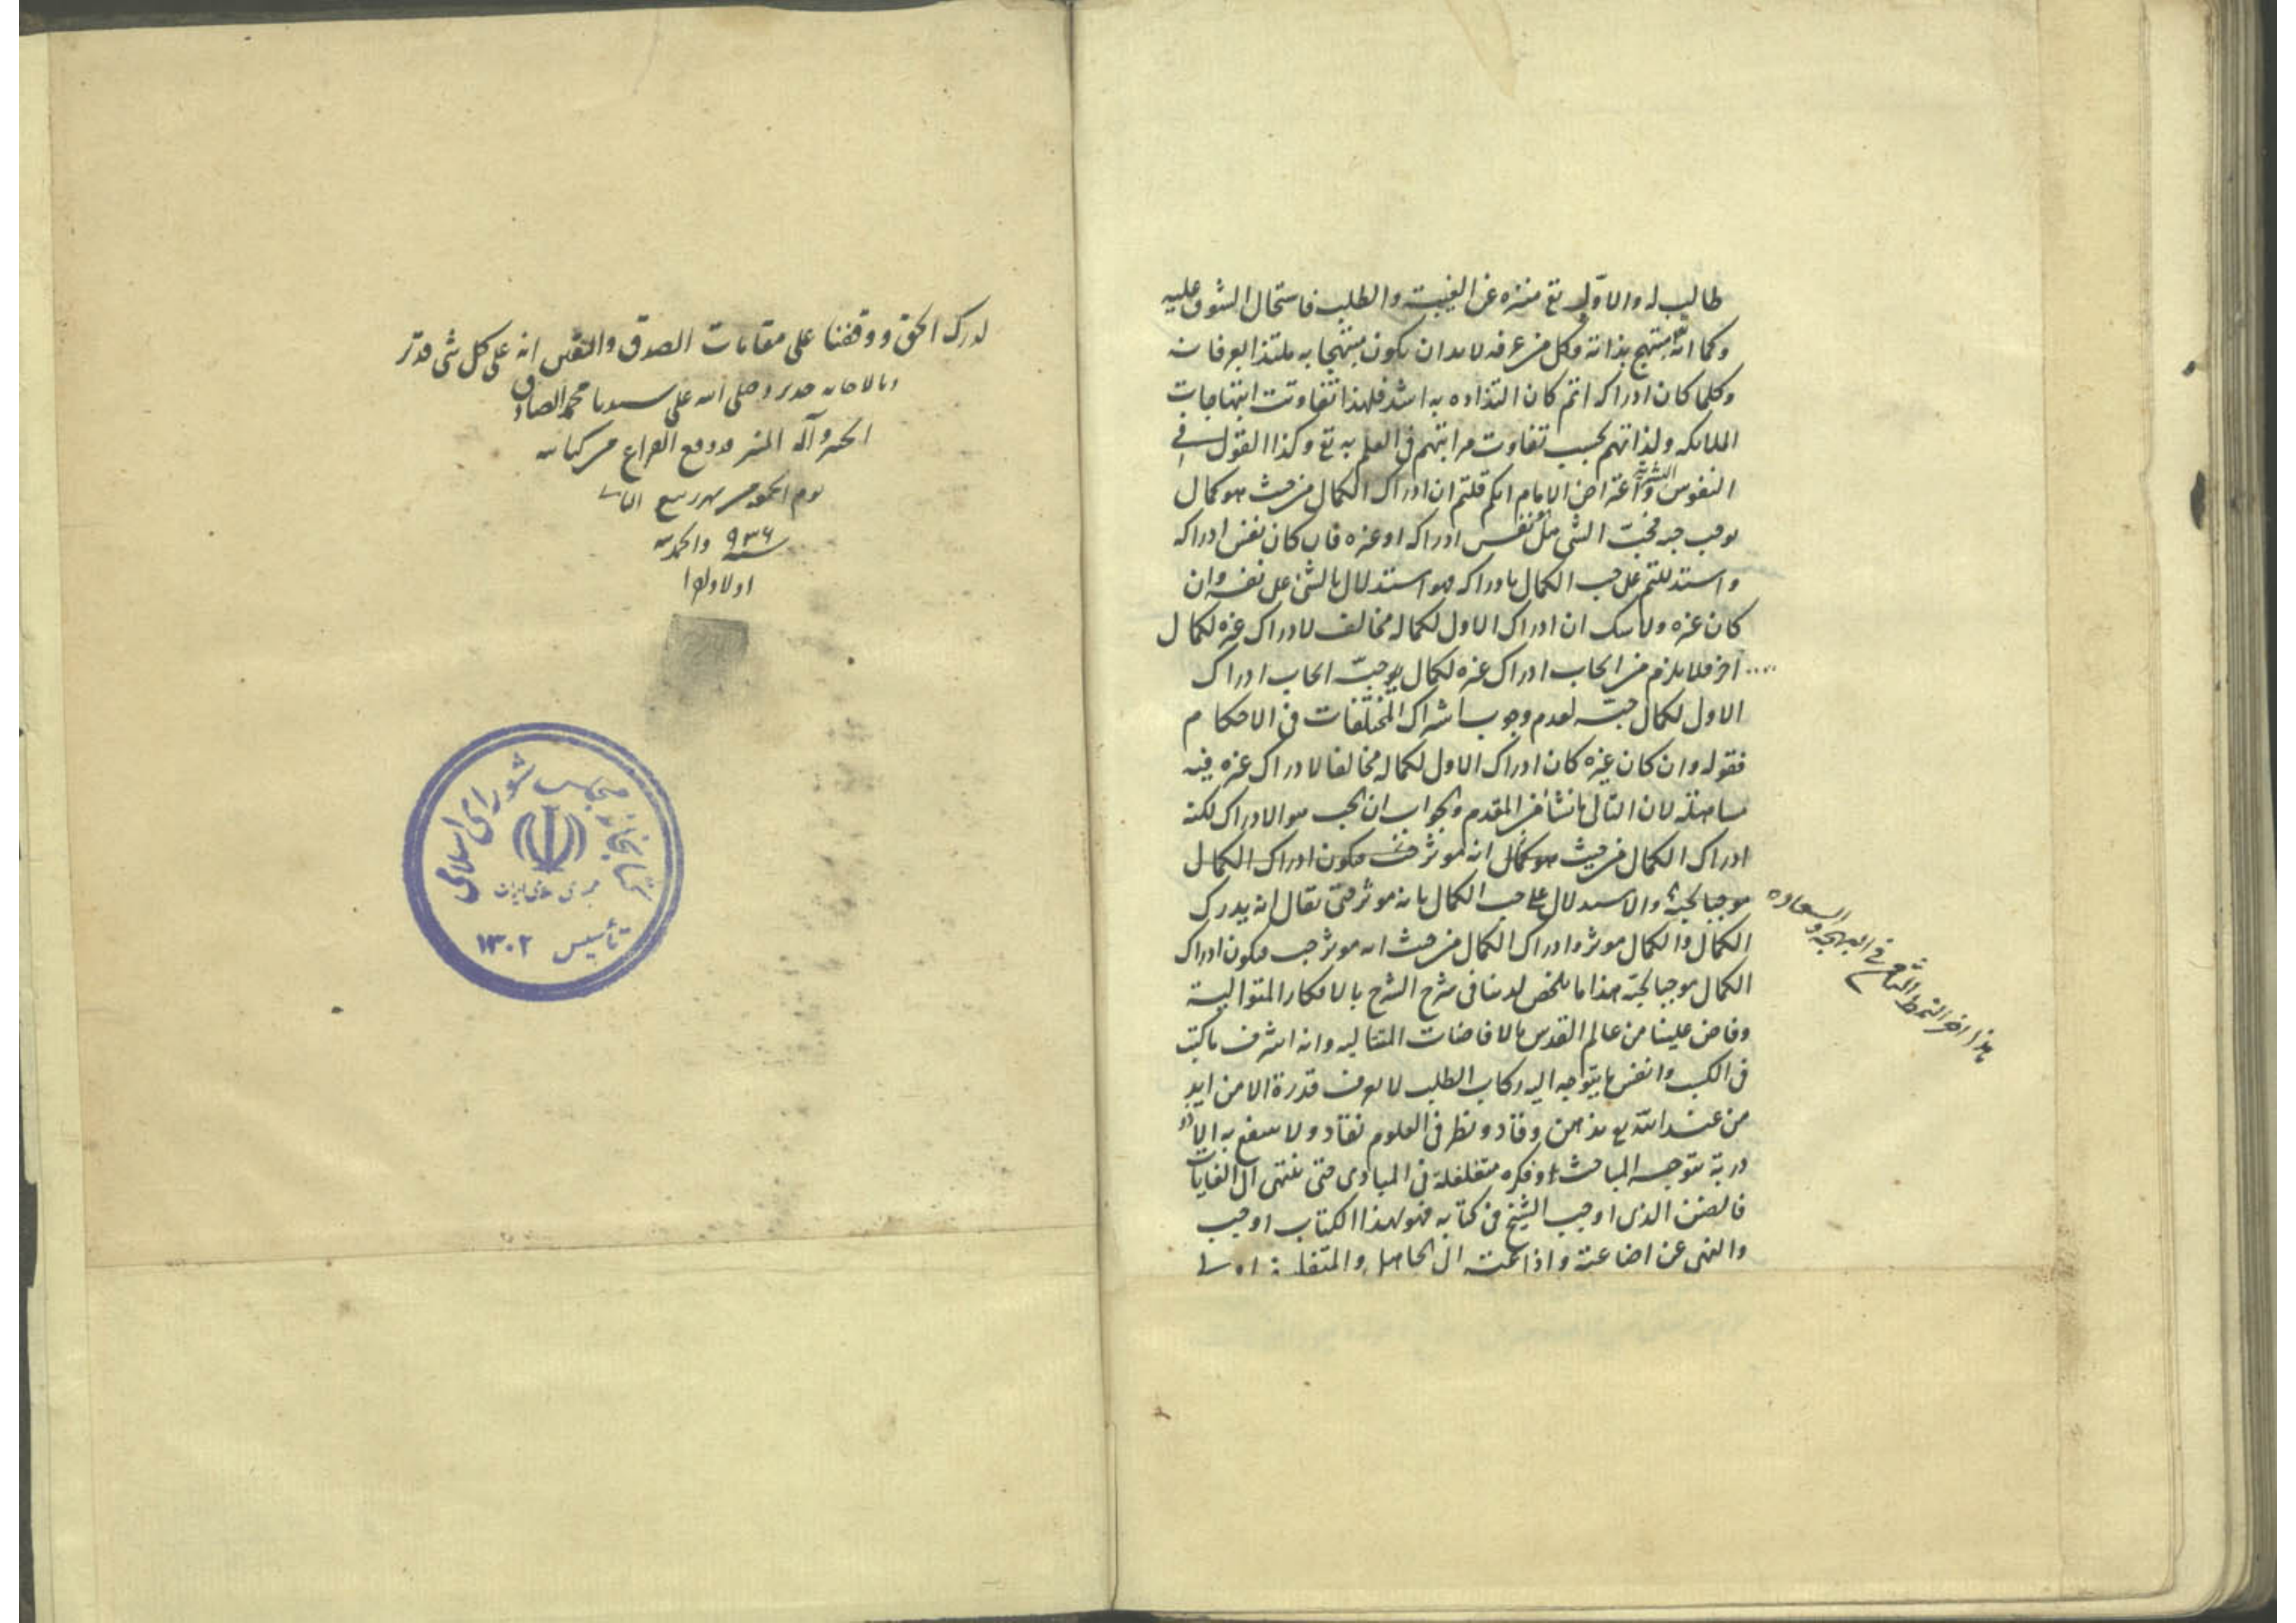 طالب له والاول تع منزه عن الغيبة والطلب فاستحال الشوق عليه
وكما انه مبتهج بذاته وكل من عرفه لابد ان يكون مبتهجا به ملتذا بعرفانه
وكلما كان ادراكه اتم كان التذاذه به اشد فلهذا تفاوتت ابتهاجات
الملايكه ولذاتهم بحسب تفاوت مراتبهم في العلم به تع وكذا القول في
النفوس البشرية واعترض الامام انكم قلتم ان ادراك الكمال من حيث هو كمال
يوجب حبه فحب الشي نفس ادراكه او غيره فان كان نفس ادراكه
واستدللتم على حب الكمال بادراكه فهو استدلال بالشي على نفسه وان
كان غيره ولا شك ان ادراك الاول لكماله مخالف لادراك غيره لكمال
اخر فلا يلزم من ايجاب ادراك غيره لكمال حبه ايجاب ادراك
الاول لكمال حبه لعدم وجوب اشتراك المختلفات في الاحكام
فقوله وان كان غيره كان ادراك الاول لكماله مخالفا لادراك غيره فيه
مساهلة لان التالي ما نشا من المقدم والجواب ان الحب هو الادراك لكنه
ادراك الكمال من حيث هو كمال انه موثر فيكون ادراك الكمال
موجبا لحبه والاستدلال على حب الكمال بانه موثر حتى يقال انه يدرك
الكمال والكمال موثر وادراك الكمال من حيث انه موثر حب فيكون ادراك
الكمال موجبا لحبه هذا ما تلخص لدينا في شرح الشرح بالافكار المتوالية
وفاض علينا من عالم القدس بالافاضات المتتاليه وانه اشرف ما كتب
في الكتب وانفس ما يتوجه اليه ركاب الطلب لا يعرف قدره الا من ايد
من عند الله تع بذهن وقاد ونظر في العلوم نقاد ولا ينتفع به الا ذو
دربة بتوجيه المباحث وفكره متغلغلة في المبادى حتى ينتهى الى الغايات
فالضن الذي اوجب الشيخ في كتابه فهو لهذا الكتاب اوجب
والنهى عن اضاعته واذاعته الى الجاهل والمتفلسف اولى
هذا اخر النمط الثامن في البهجة والسعادة
لدرك الحق ووقفنا على مقامات الصدق واليقين انه على كل شي قدير
وبالاجابه جدير وصلى الله على سيدنا محمد الصادق
وآله وقع الفراغ من كتابته
يوم الجمعه من شهر ربيع الثاني
سنه ٩٣٦ والحمد لله
اولا واخرا
كتابخانه مجلس شورای اسلامی
تأسیس ۱۳۰۲